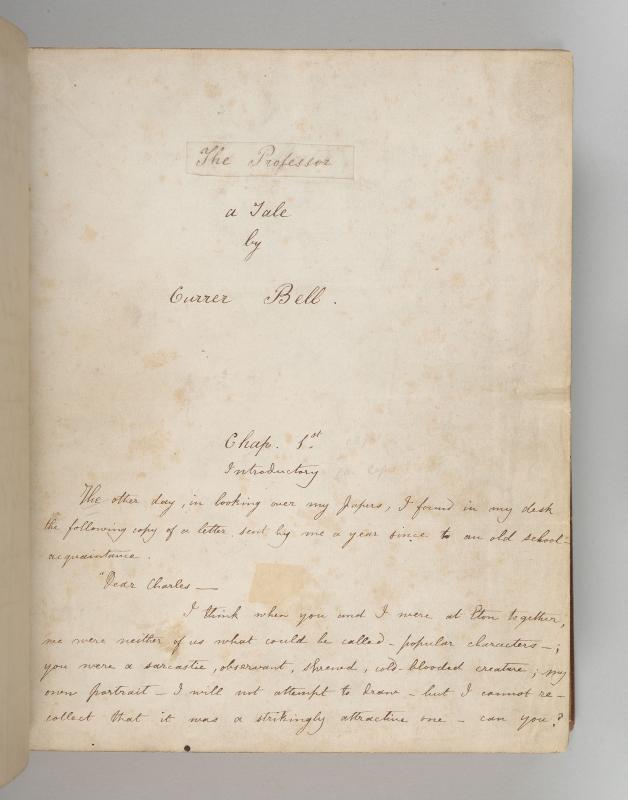 The Professor
a Tale
by
Currer Bell.
Chap. 1st
Introductory
The other day, in looking over my papers, I found in my desk
the following copy of a letter, sent by me a year since to an old school-
acquaintance.
"Dear Charles —
I think when you and I were at Eton together,
we were neither of us what could be called – popular characters –;
you were a sarcastic, observant, shrewd, cold-blooded creature; my
own portrait – I will not attempt to draw – but I cannot re-
collect that it was a strikingly attractive one – can you?